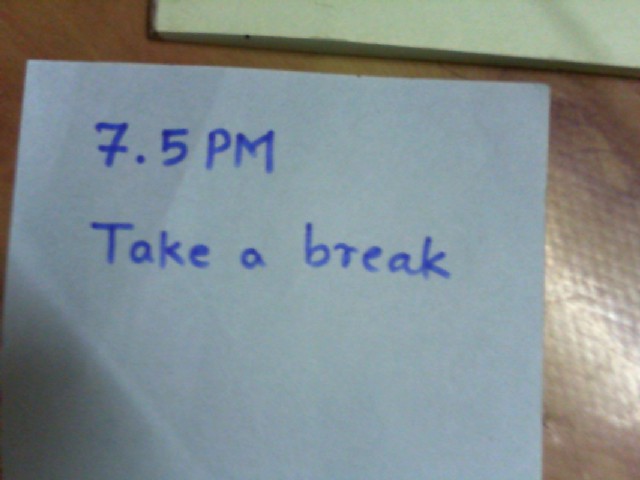 7.5 PM
Take a break